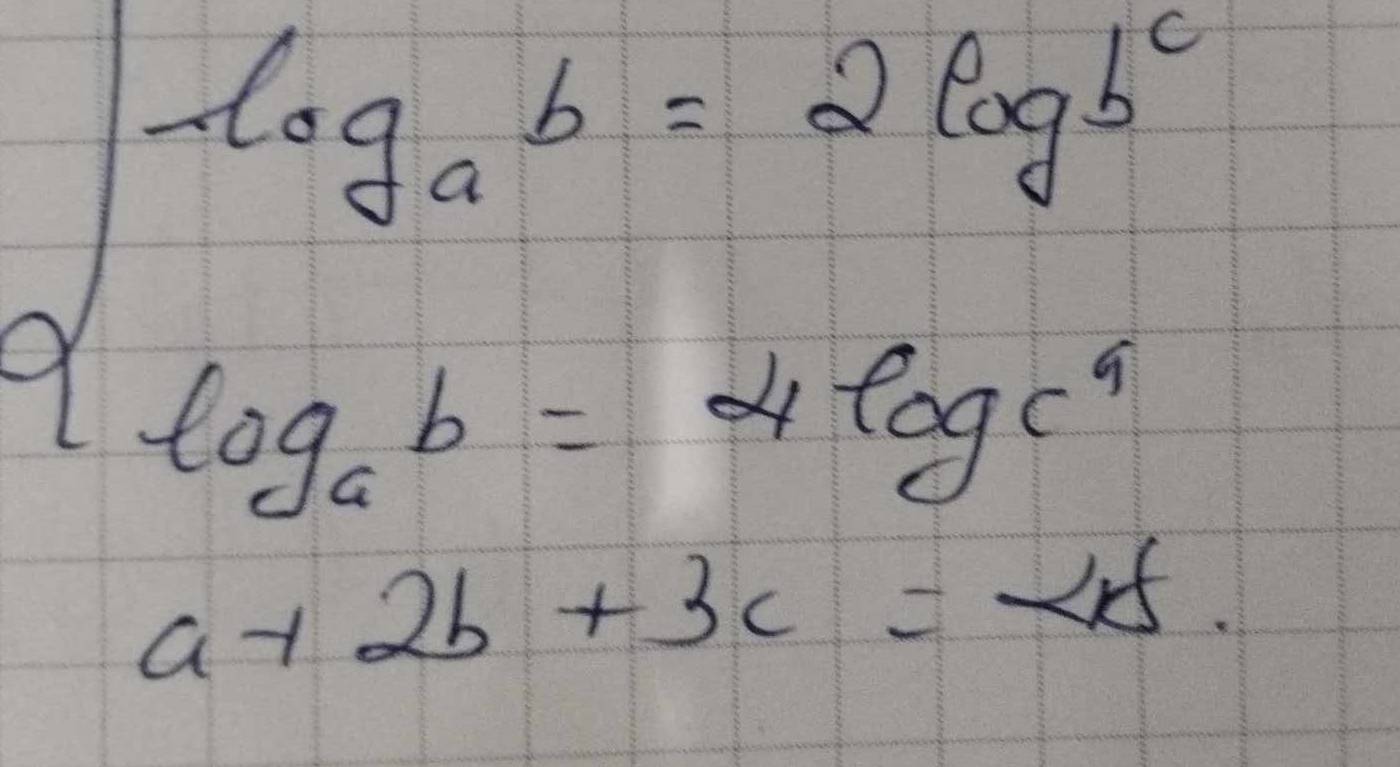 log_a b = 2 log b^c
log_a b = 4 log c^a
a + 2b + 3c =